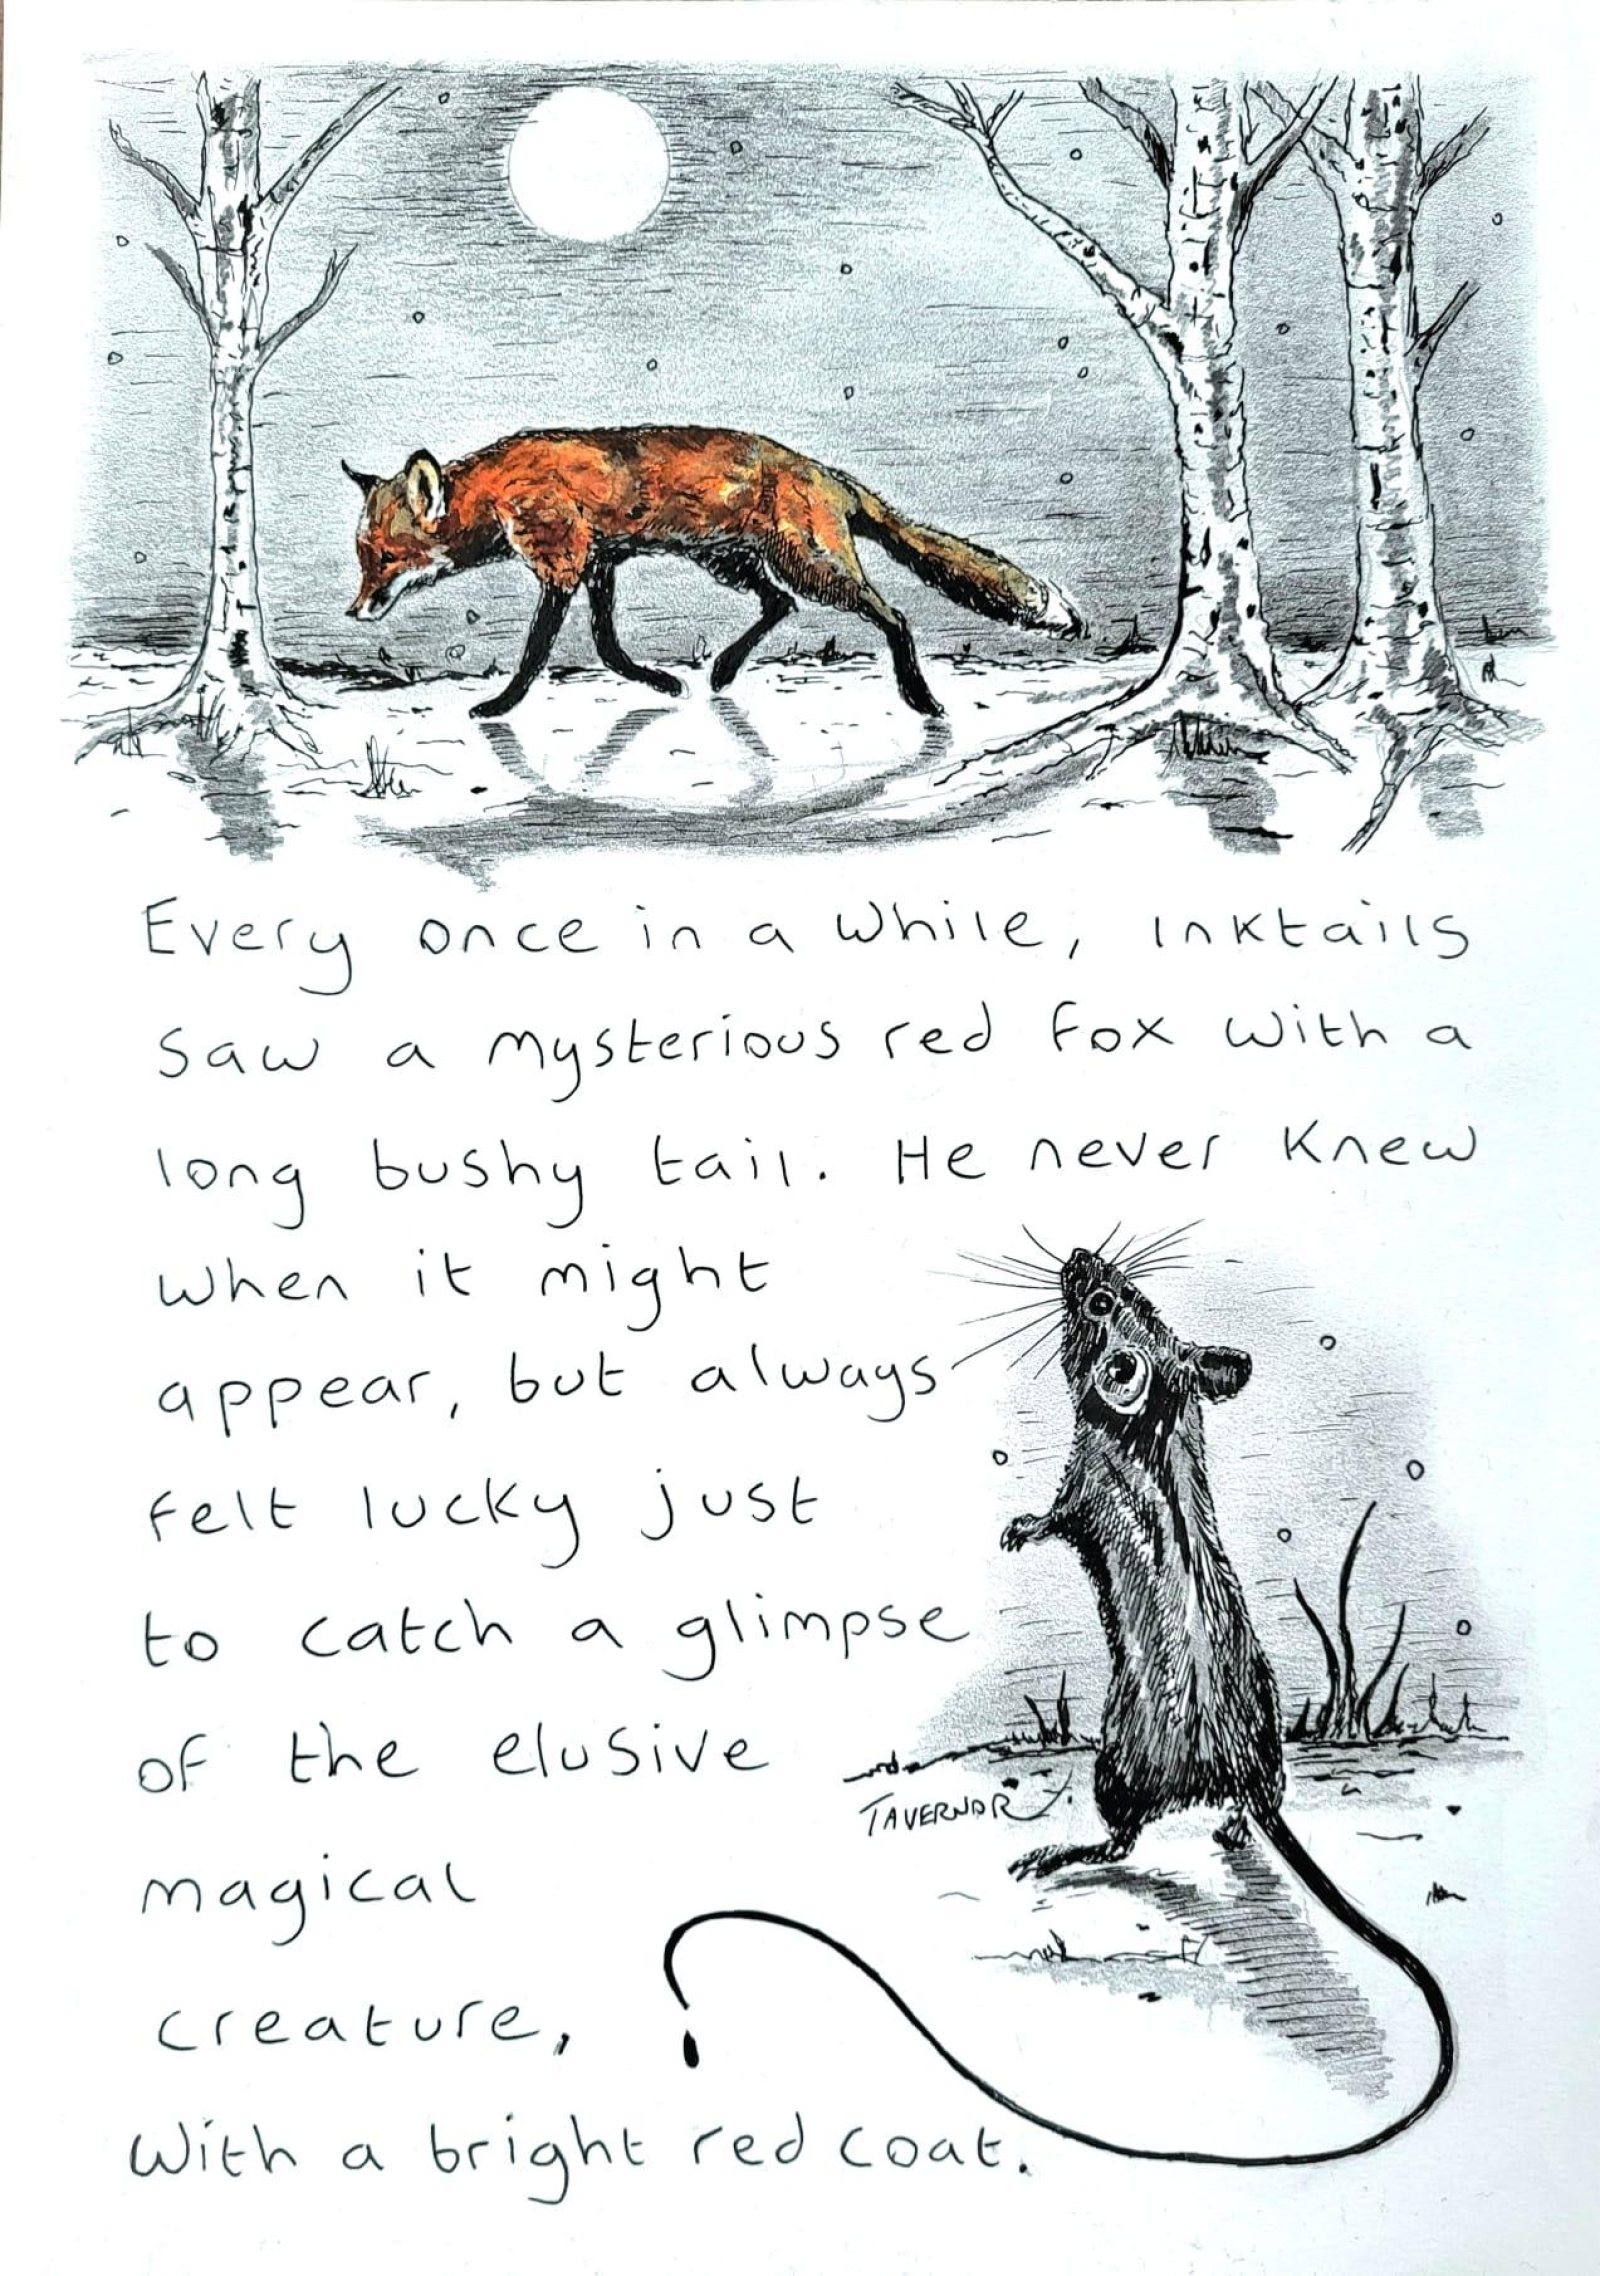 Every once in a while, Inktails
saw a mysterious red fox with a
long bushy tail. He never knew
when it might
appear, but always
felt lucky just
to catch a glimpse
of the elusive
magical
creature,
With a bright red coat.
TAVERNOR